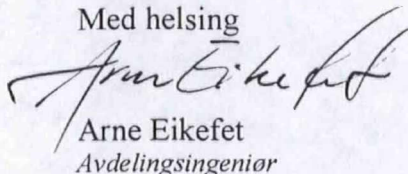 Med helsing
Arne Eikefet
Arne Eikefet
Avdelingsingeniør